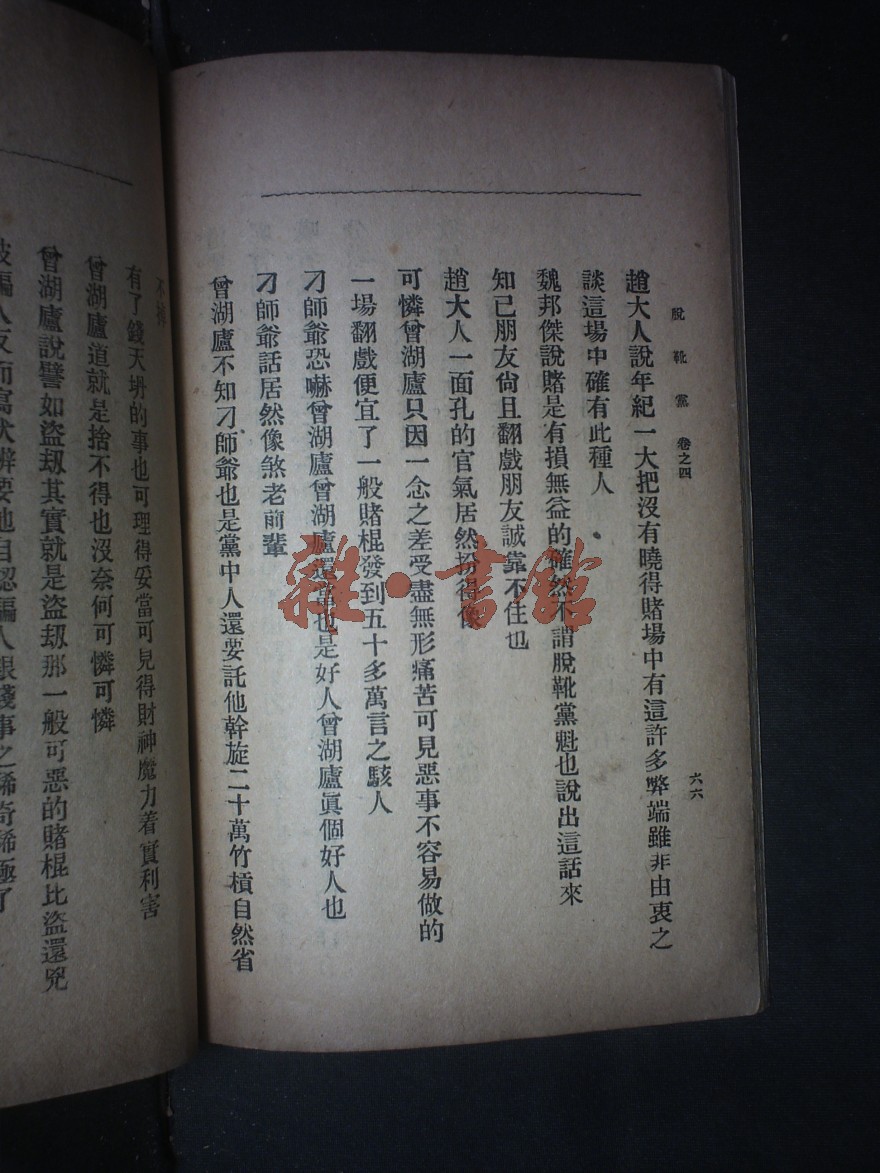 脫靴黨 卷之四
六六
趙大人說年紀一大把沒有曉得賭場中有這許多弊端雖非由衷之
談這場中確有此種人
魏邦傑說賭是有損無益的確然不謂脫靴黨魁也說出這話來
知己朋友尙且翻戲朋友誠靠不住也
趙大人一面孔的官氣居然扮得像
可憐曾湖廬只因一念之差受盡無形痛苦可見惡事不容易做的
一場翻戲便宜了一般賭棍發到五十多萬言之駭人
刁師爺恐嚇曾湖廬曾湖廬還當也是好人曾湖廬眞個好人也
刁師爺話居然像煞老前輩
曾湖廬不知刁師爺也是黨中人還要託他幹旋二十萬竹槓自然省
不掉
有了錢天坍的事也可理得妥當可見得財神魔力着實利害
曾湖廬道就是捨不得也沒奈何可憐可憐
曾湖廬說譬如盜刼其實就是盜刼那一般可惡的賭棍比盜還兇
被騙人反而寫伏辨要他自認騙人銀錢事之稀奇稀極了
雜·書館